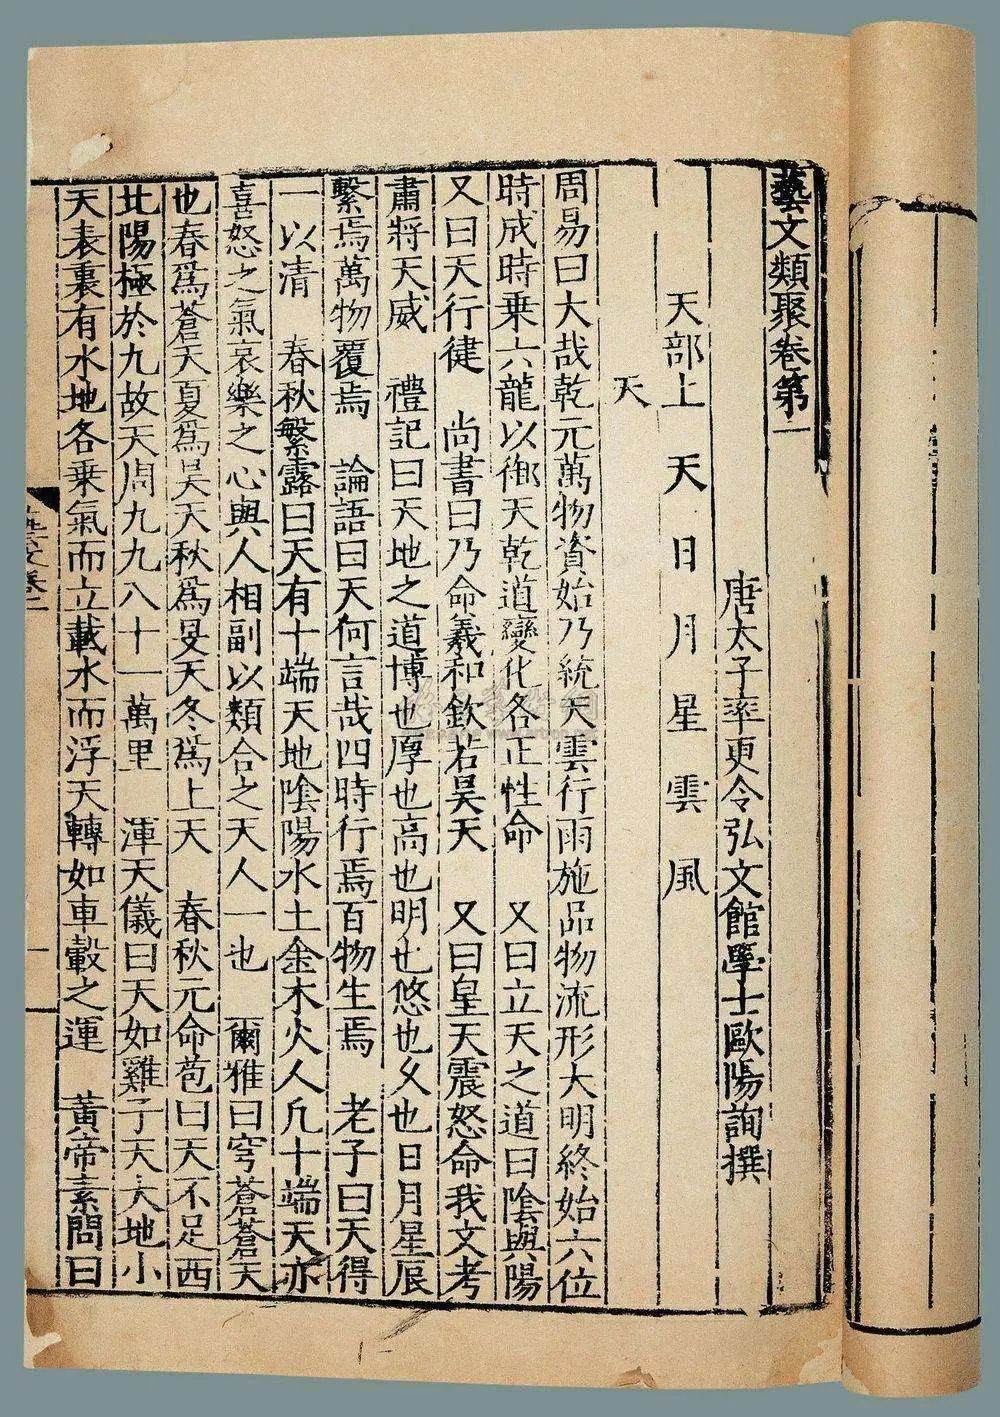 藝文類聚卷第一
唐太子率更令弘文館學士歐陽詢撰
天部上 天 日 月 星 雲 風
天
周易曰大哉乾元萬物資始乃統天雲行雨施品物流形大明終始六位
時成時乗六龍以御天乾道變化各正性命 又曰立天之道曰陰與陽
又曰天行健 尚書曰乃命羲和欽若昊天 又曰皇天震怒命我文考
肅將天威 禮記曰天地之道博也厚也高也明也悠也久也日月星辰
繫焉萬物覆焉 論語曰天何言哉四時行焉百物生焉 老子曰天得
一以清 春秋繁露曰天有十端天地陰陽水土金木火人凡十端天亦
喜怒之氣哀樂之心與人相副以類合之天人一也 爾雅曰穹蒼蒼天
也春爲蒼天夏爲昊天秋爲旻天冬爲上天 春秋元命苞曰天不足西
北陽極於九故天周九九八十一萬里 渾天儀曰天如雞子天大地小
天表裏有水地各乗氣而立載水而浮天轉如車轂之運 黃帝素問曰